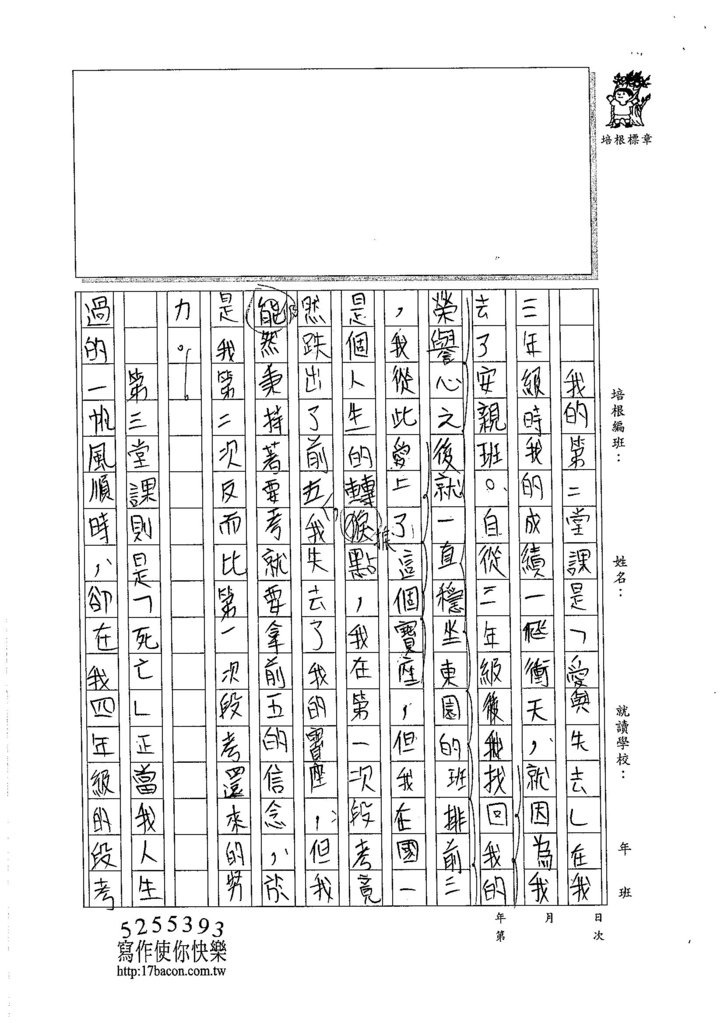 培根標章
培根編班：
姓名：
就讀學校：
年
班
日
月
年
次
第
我的第二堂課是「愛與失去」在我
三年級時我的成績一飛衝天，就因為我
去了安親班。自從三年級後我找回我的
榮譽心之後就一直穩坐東園的班排前三
，我從此愛上了這個寶座，但我在國一
是個人生的轉捩點，我在第一次段考竟
然跌出了前五，我失去了我的寶座，但我
能然秉持著要考就要拿前五的信念，於
是我第二次反而比第一次段考還來的努
力。
第三堂課則是「死亡」正當我人生
過的一帆風順時，卻在我四年級的段考
5255393
寫作使你快樂
http:17bacon.com.tw